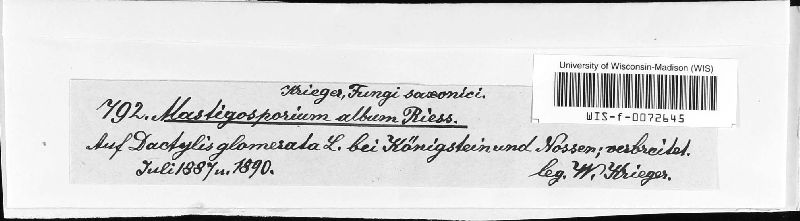 Krieger, Fungi saxonici.
792. Mastigosporium album Riess.
Auf Dactylis glomerata L. bei Königstein und Nossen; verbreitet.
Juli 1887 u. 1890.
leg. W. Krieger.
University of Wisconsin-Madison (WIS)
WIS-f-0072645